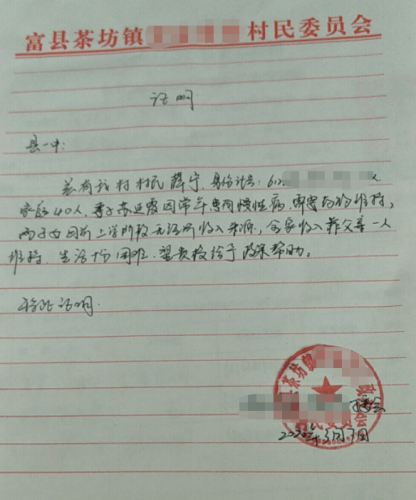 富县茶坊镇 村民委员会
证明
县一中:
兹有我村村民薛宁,身份证号:61
家庭40人,妻子 因常年患有慢性病,需要药物维持,
两子女目前上学阶段无任何收入来源,全家收入靠父亲一人
维持,生活十分困难,望贵校给予政策帮助。
特此证明。
茶坊镇
村民委员会